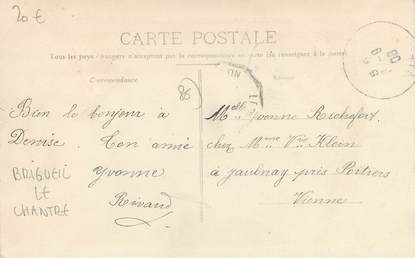 20 €
CARTE POSTALE
Tous les pays étrangers n'acceptent pas la correspondance au recto (se renseigner à la poste).
Correspondance
Adresse
86
Bien le bonjour à
Denise. Ton amie
Yvonne
Rivaud
BRIGUEIL
LE
CHANTRE
Melle Yvonne Richefort,
chez Mme Vve Klein
à Jaulnay près Poitiers
Vienne